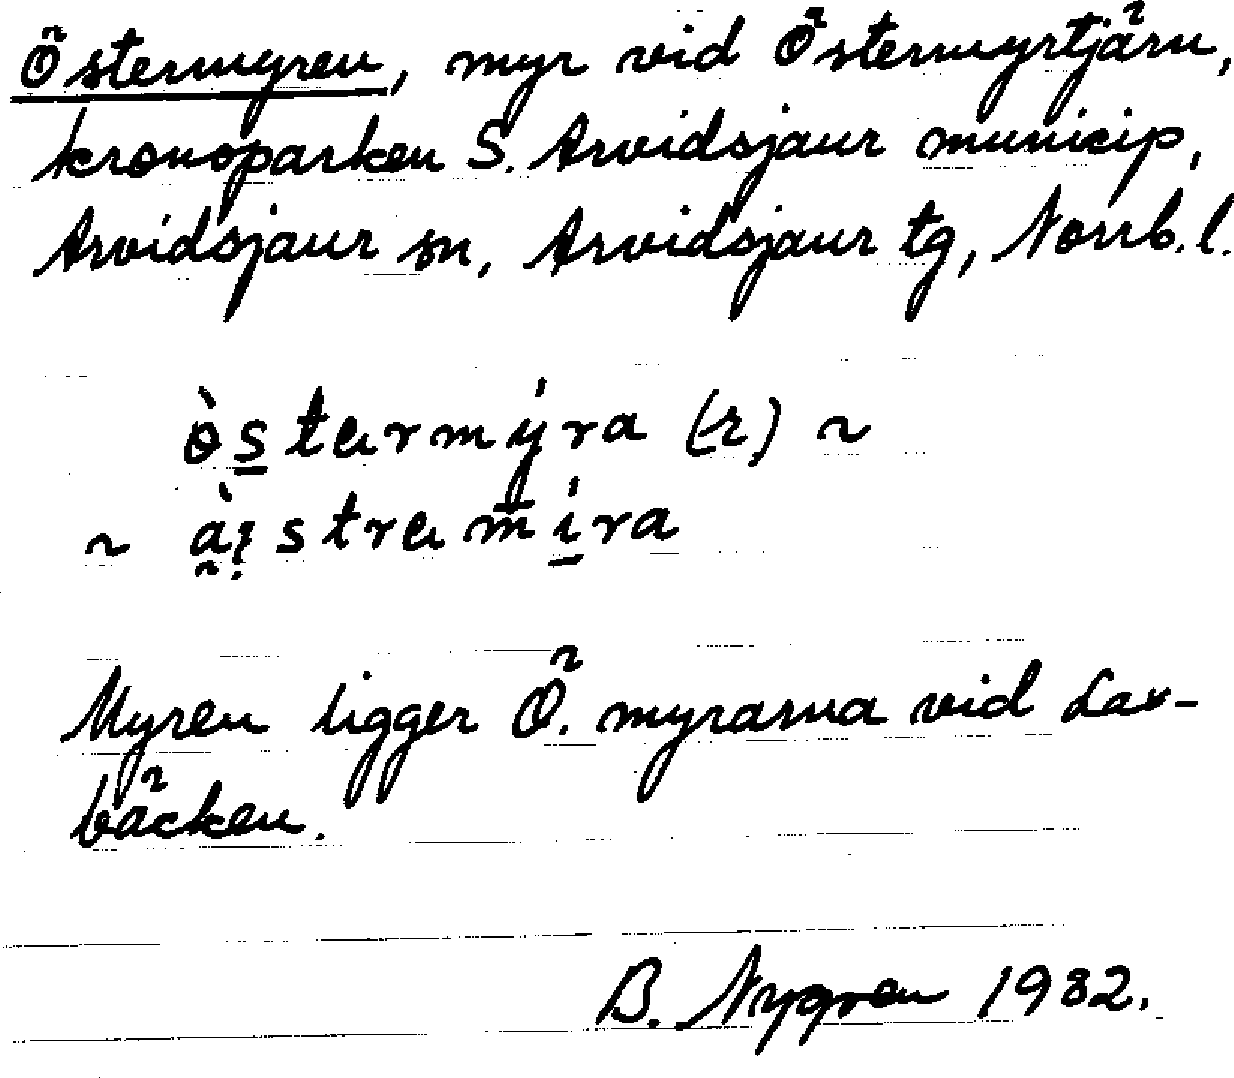 Östermyren, myr vid Östermyrtjärn,
kronoparken S. Arvidsjaur municip,
Arvidsjaur sn, Arvidsjaur tg, Norrb. l.
Myren ligger Ö. myrarna vid Lax-
bäcken.
B. Nygren 1932.